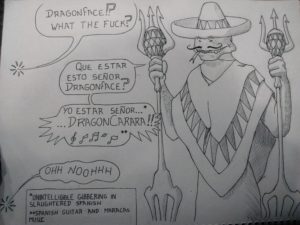 DRAGONFACE!!?
WHAT THE FUCK?
QUE ESTAR
ESTO SEÑOR
DRAGONFACE?
YO ESTAR SEÑOR...*
...DRAGONCARARA!!
**
OHH NOOHHH
*UNINTELLIGIBLE GIBBERING IN
SLAUGHTERED SPANISH
**SPANISH GUITAR AND MARACAS
MUSIC